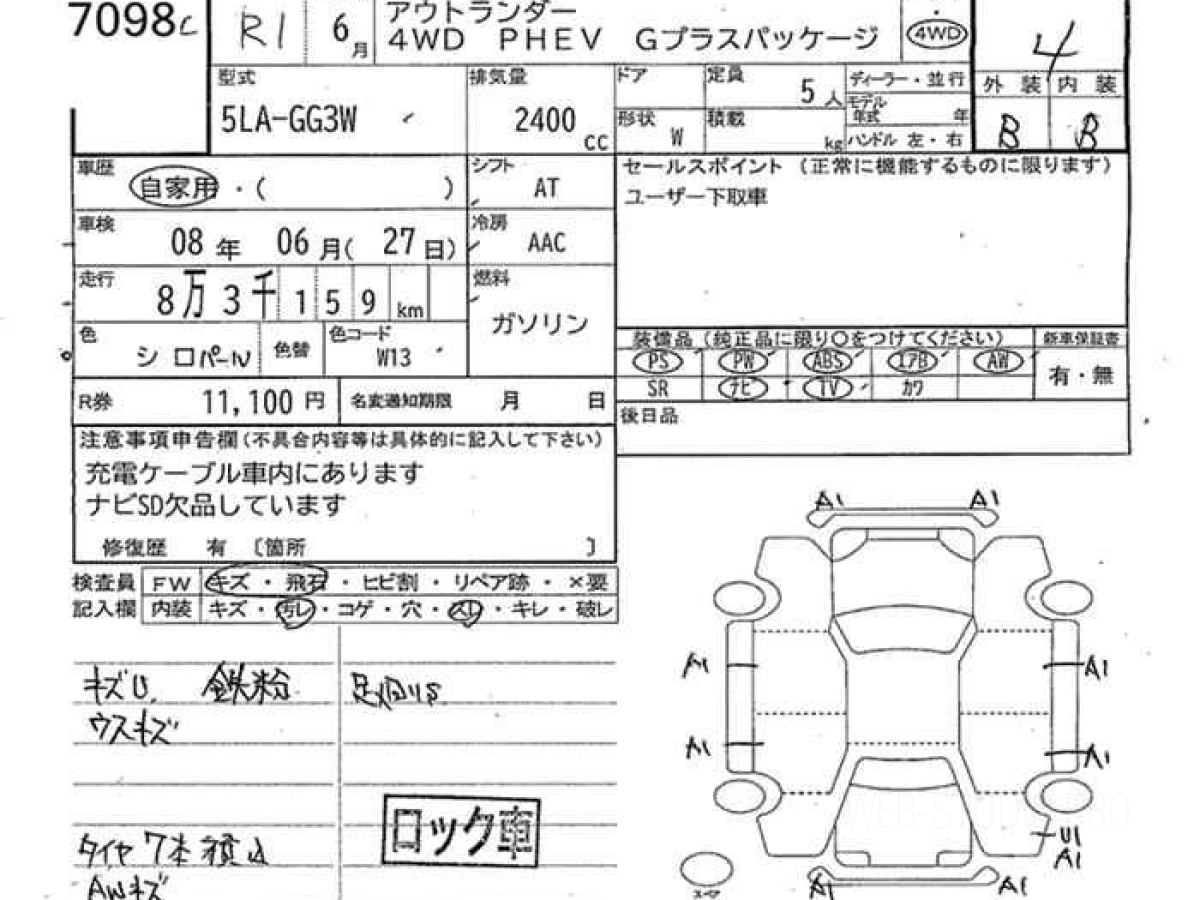 7098
R1 6月
アウトランダー
4WD PHEV Gプラスパッケージ
4WD
4
型式 5LA-GG3W
排気量 2400 cc
ドア
定員 5人
ディーラー・並行
モデル年式 年
形状 W
積載 kg
ハンドル 左・右
外装 内装
B B
車歴 自家用・( )
シフト AT
セールスポイント (正常に機能するものに限ります)
ユーザー下取車
車検 08年 06月( 27日)
冷房 AAC
走行 8万3千159km
燃料 ガソリン
色 シロパール
色替
色コード W13
装備品(純正品に限り○をつけてください)
新車保証書
PS PW ABS エアB AW
有・無
SR ナビ TV カワ
R券 11,100円
名変通知期限 月 日
後日品
注意事項申告欄(不具合内容等は具体的に記入して下さい)
充電ケーブル車内にあります
ナビSD欠品しています
修復歴 有 〔箇所 〕
検査員 FW キズ・飛石・ヒビ割・リペア跡・×要
記入欄 内装 キズ・汚レ・コゲ・穴・スレ・キレ・破レ
A1 A1
キズU, 鉄粉
足廻りS
ウスキズ
A1 A1
A1 A1
ロック車
タイヤ7本積込
AWキズ
U1
A1
スペア
A1 A1
WEB-STUDIO.RO